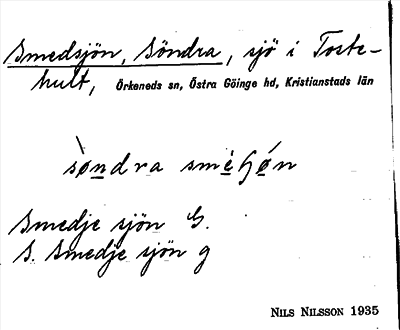 Smedsjön, Söndra, sjö i Toste-
hult, Örkeneds sn, Östra Göinge hd, Kristianstads län
sòndra
Smedje sjön G.
S. Smedje sjön g
NILS NILSSON 1935